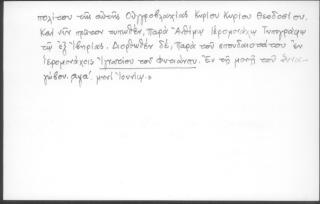 πολίτου τῆς αὐτῆς Οὑγγροβλαχίας Κυρίου Κυρίου Θεοδοσίου.
Καὶ νῦν πρῶτον τυπωθέν, Παρὰ Ἀνθίμῳ Ἱερομονάχῳ Τυπογράφῳ
τῷ ἐξ Ἰβηρίας. Διορθωθὲν δέ, Παρὰ τοῦ σπουδαιοτάτου ἐν
ἱερομονάχοις Ἰγνατίου τοῦ Φυτιάνου. Ἐν τῇ μονῇ τοῦ
αχα΄. μηνὶ Ἰουνίῳ.»